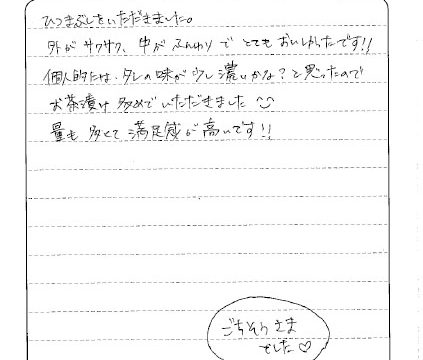 ひつまぶしをいただきました。
外がサクサク、中がふんわりでとてもおいしかったです!!
個人的には、タレの味が少し濃いかな?と思ったので
お茶漬け多めでいただきました
量も多くて満足感が高いです!!
ごちそうさま
でした♡